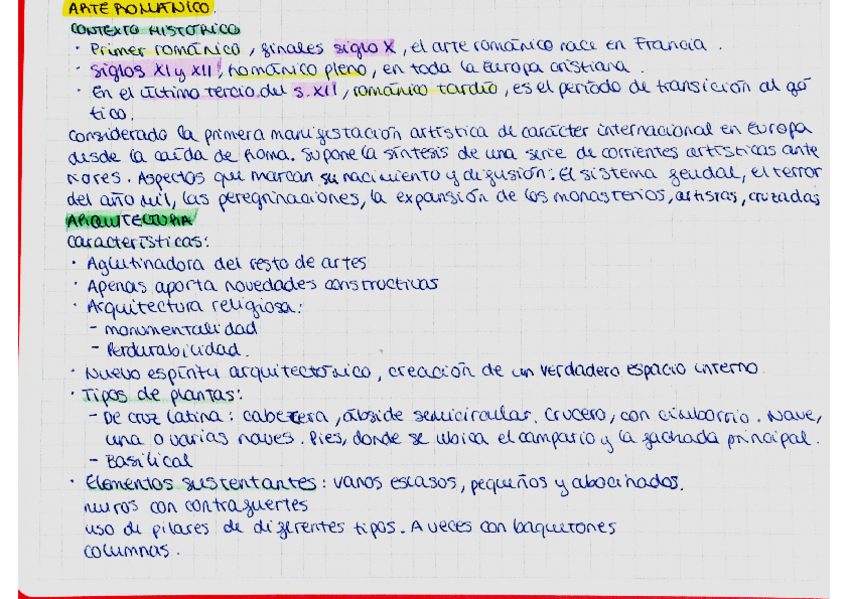 ARTE ROMÁNICO.
CONTEXTO HISTÓRICO
· Primer románico, finales siglo X, el arte románico nace en Francia.
· Siglos XI y XII, románico pleno, en toda la Europa cristiana.
· En el último tercio del s. XII, románico tardío, es el período de transición al gó
tico.
Considerado la primera manifestación artística de carácter internacional en Europa
desde la caída de Roma. Supone la síntesis de una serie de corrientes artísticas ante
riores. Aspectos que marcan su nacimiento y difusión: El sistema feudal, el terror
del año mil, las peregrinaciones, la expansión de los monasterios, artistas, cruzadas
ARQUITECTURA
Características:
· Aglutinadora del resto de artes
· Apenas aporta novedades constructivas
· Arquitectura religiosa:
- Monumentalidad
- Perdurabilidad.
· Nuevo espíritu arquitectónico, creación de un verdadero espacio interno.
· Tipos de plantas:
- De cruz latina: cabecera, ábside semicircular. Crucero, con cimborrio. Nave,
una o varias naves. Pies, donde se ubica el campario y la fachada principal.
- Basilical
· Elementos sustentantes: vanos escasos, pequeños y abocinados.
muros con contrafuertes
uso de pilares de diferentes tipos. A veces con baquetones
columnas.